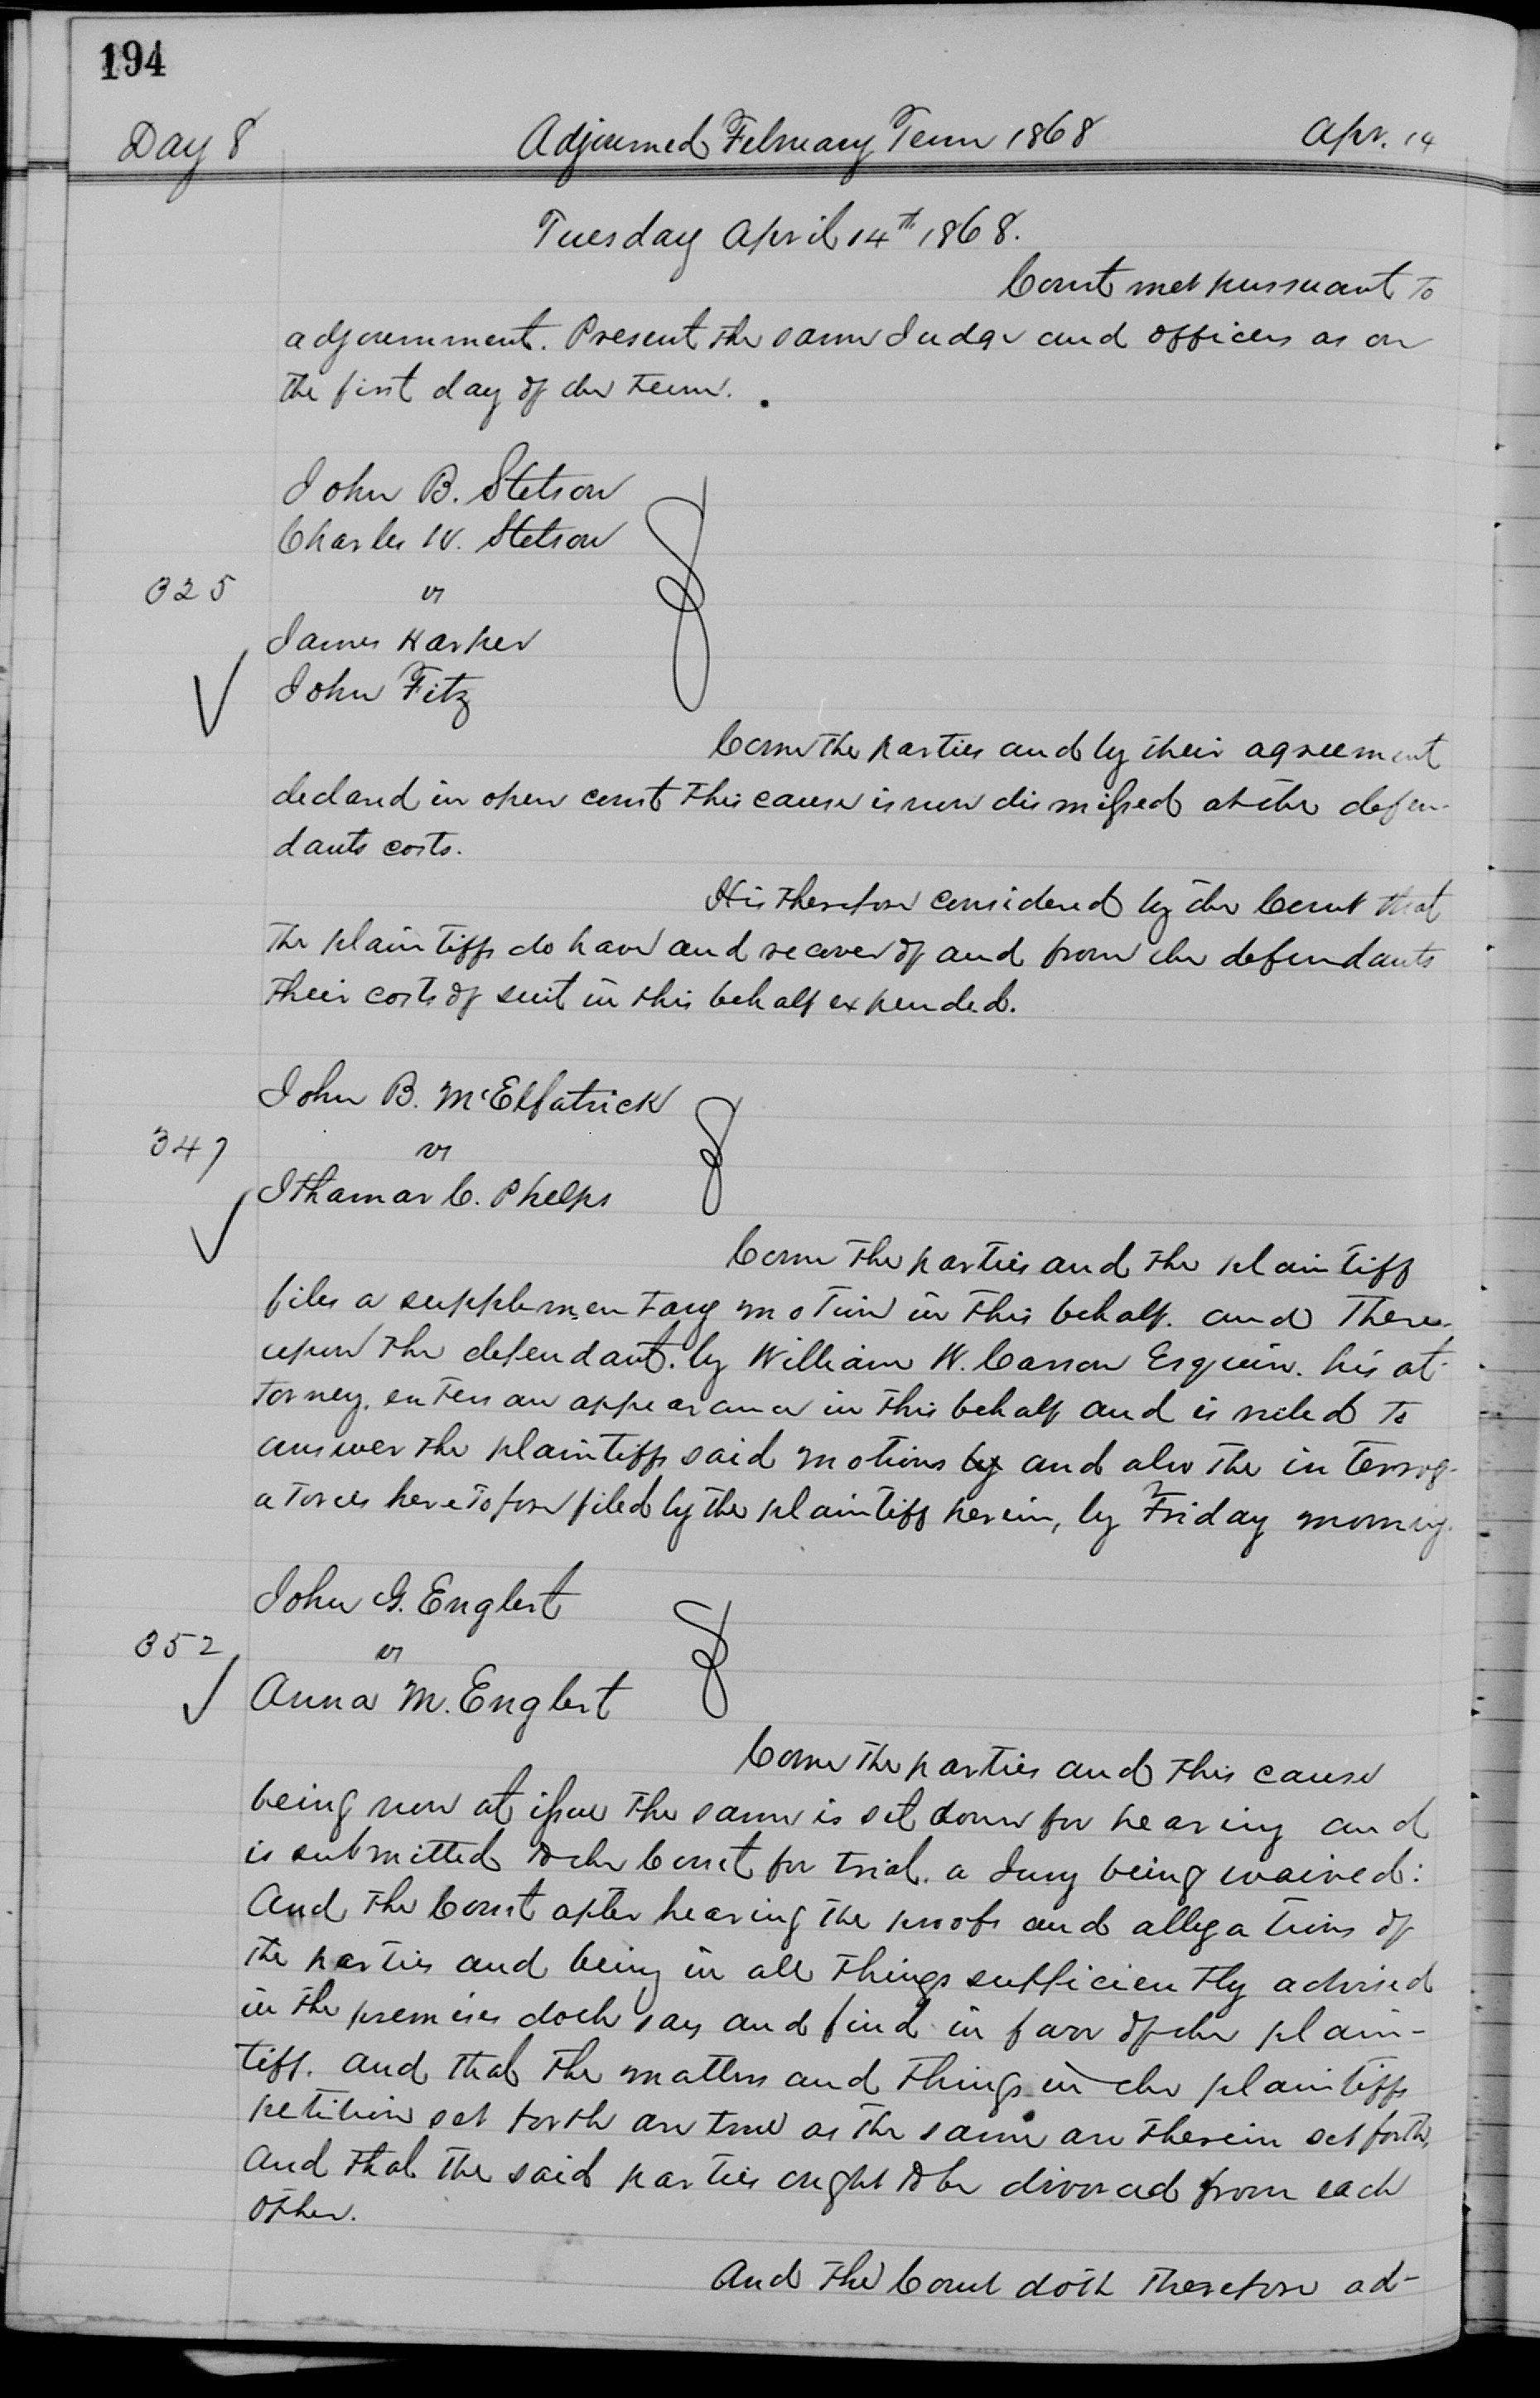 194
Day 8 Adjourned February Term 1868 Apr. 14
Tuesday April 14th 1868.
Court met pursuant to
adjournment. Present the same Judge and officers as on
the first day of the Term.
John B. Stetson
Charles W. Stetson
325 vs
James Harper
John Fitz
Come the parties and by their agreement
declared in open court this cause is now dismissed at the defen-
dants costs.
It is therefore considered by the Court that
the plaintiffs do have and recover of and from the defendants
their costs of suit in this behalf expended.
John B. McElfatrick
347 vs
Ithamar C. Phelps
Come the parties and the plaintiff
files a supplementary motion in this behalf. and there-
upon the defendant. by William W. Carson Esquire. his at-
torney. enters an appearance in this behalf and is ruled to
answer the plaintiffs said motions by and also the interrog-
atories heretofore filed by the plaintiff herein, by Friday morning.
John G. Englert
352 vs
Anna M. Englert
Come the parties and this cause
being now at issue the same is set down for hearing and
is submitted to the Court for trial. a Jury being waived:
And the Court after hearing the proofs and allegations of
the parties and being in all things sufficiently advised
in the premises doth say and find in favor of the plain-
tiff. and that the matters and things in the plaintiffs
petition set forth are true as the same are therein set forth,
And that the said parties ought to be divorced from each
other.
And the Court doth therefore ad-